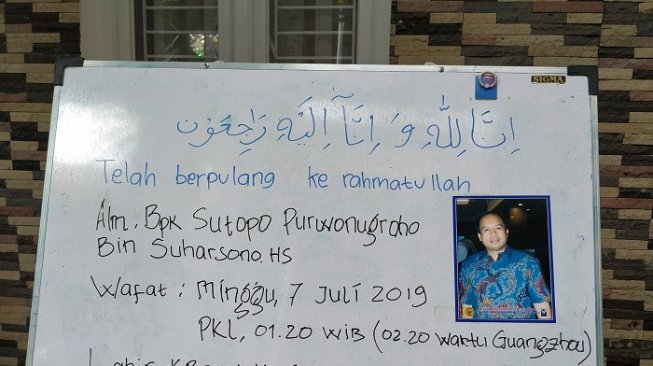 SIGMA
اِنَّا لِلّٰهِ وَ اِنَّآ اِلَيْهِ رَاجِعُوْن
Telah berpulang ke rahmatullah
Alm. Bpk Sutopo Purwonugroho
Bin Suharsono.HS
Wafat : Minggu, 7 Juli 2019
PKL, 01.20 WIB (02.20 Waktu Guangzhou)